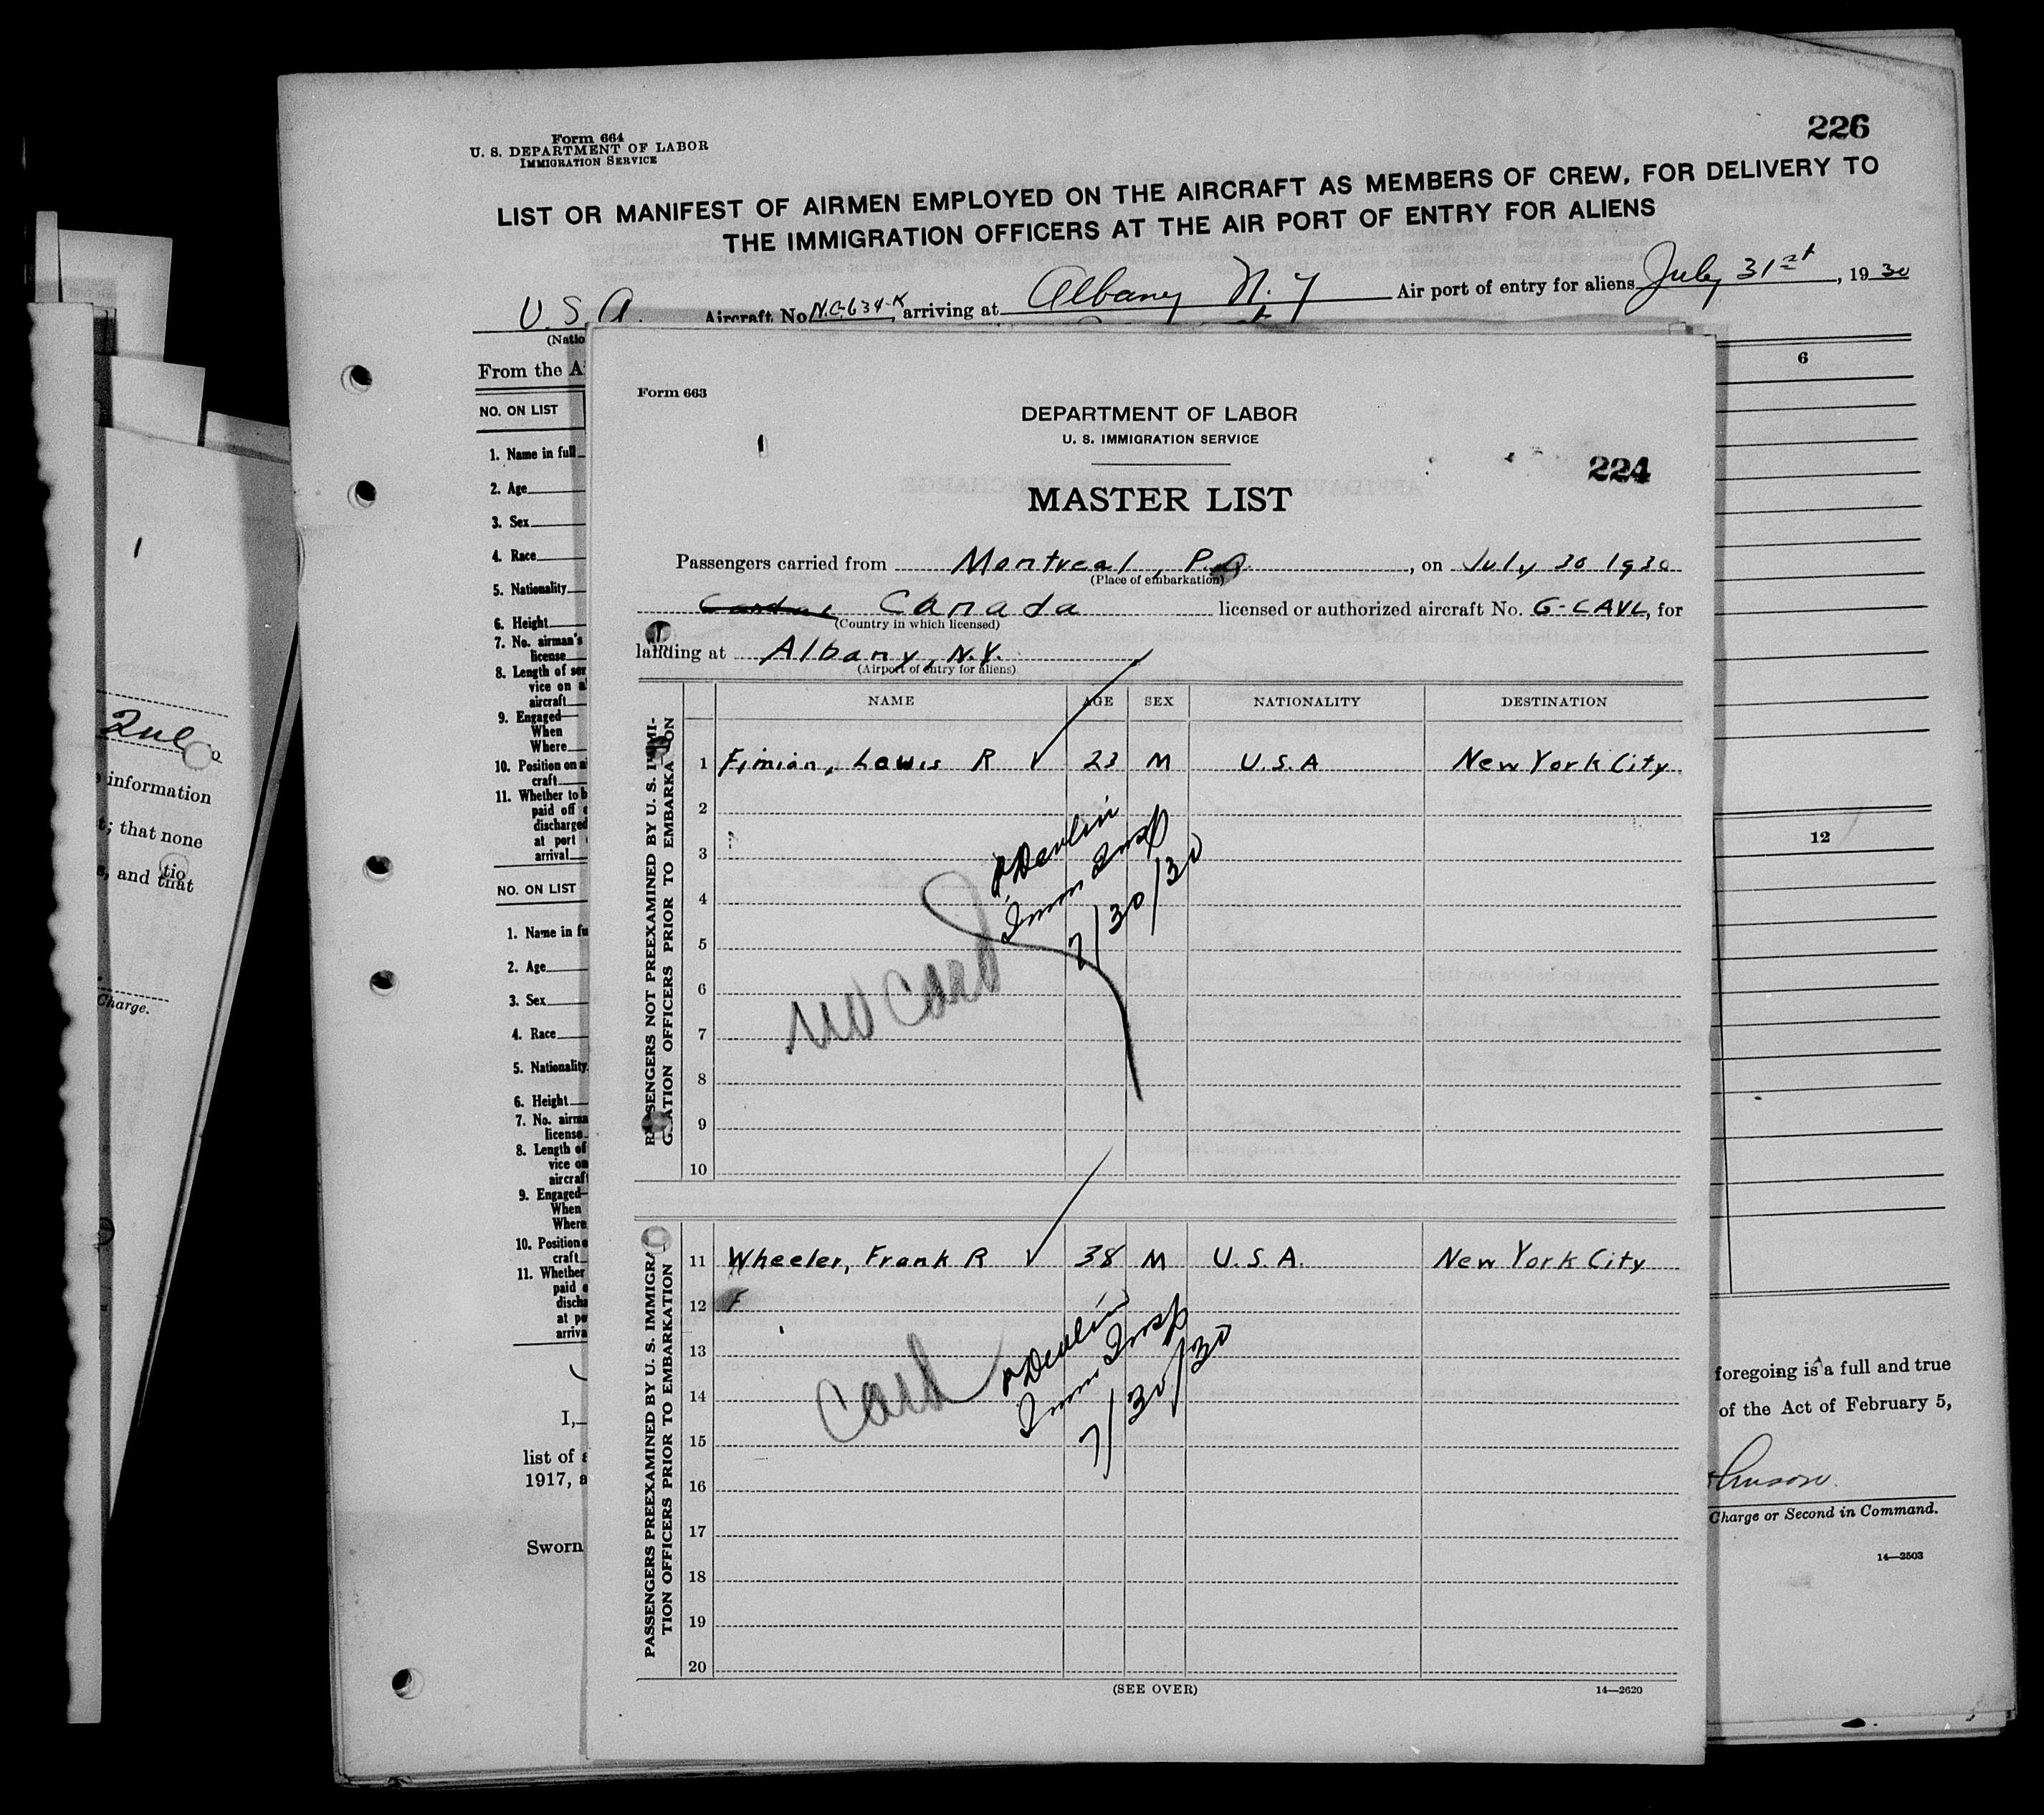 Form 664
U. S. DEPARTMENT OF LABOR
IMMIGRATION SERVICE
226
LIST OR MANIFEST OF AIRMEN EMPLOYED ON THE AIRCRAFT AS MEMBERS OF CREW, FOR DELIVERY TO
THE IMMIGRATION OFFICERS AT THE AIR PORT OF ENTRY FOR ALIENS
U. S. A. Aircraft No. N.C. 634-K, arriving at Albany N. Y Air port of entry for aliens July 31st, 1930
(Natio
From the A
NO. ON LIST
6
1. Name in full
2. Age
3. Sex
4. Race
5. Nationality
6. Height
7. No. airman's
license
8. Length of ser
vice on a
aircraft
9. Engaged—
When
Where
10. Position on a
craft
11. Whether to b
paid off
discharged
at port
arrival
NO. ON LIST
12
1. Name in fu
2. Age
3. Sex
4. Race
5. Nationality
6. Height
7. No. airma
license
8. Length of
vice on
aircraft
9. Engaged—
When
Where
10. Position
craft
11. Whether
paid
discha
at po
arriva
I,
foregoing is a full and true
list of
of the Act of February 5,
1917, a
Charge or Second in Command.
Sworn
14—2503
information
t; that none
s, and that
tio
Charge.
Form 663
DEPARTMENT OF LABOR
U. S. IMMIGRATION SERVICE
1
224
MASTER LIST
Passengers carried from Montreal, P.Q., on July 30 1930
(Place of embarkation)
Canada licensed or authorized aircraft No. G-CAVL, for
(Country in which licensed)
landing at Albany, N.Y.
(Airport of entry for aliens)
NAME AGE SEX NATIONALITY DESTINATION
PASSENGERS NOT PREEXAMINED BY U. S. IMMI-
GRATION OFFICERS PRIOR TO EMBARKATION
1 Fimian, Lewis R ✓ 23 M U.S.A New York City
2
3
4
5
6
7
8
9
10
Devlin
Imm Insp
7/30/30
no card
PASSENGERS PREEXAMINED BY U. S. IMMIGRA
TION OFFICERS PRIOR TO EMBARKATION
11 Wheeler, Frank R ✓ 38 M U.S.A. New York City
12 F
13
14
15
16
17
18
19
20
Devlin
Imm Insp
7/30/30
Card
(SEE OVER)
14—2620